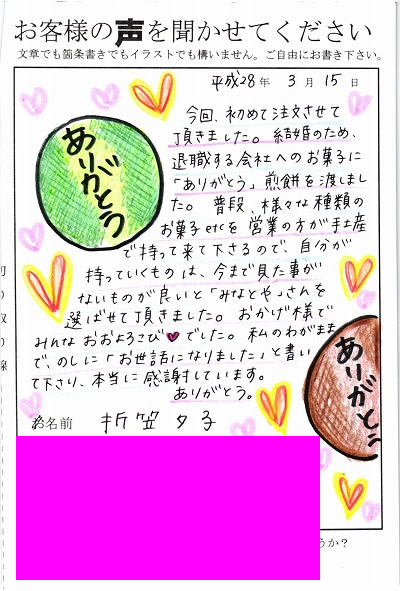 お客様の声を聞かせてください
文章でも箇条書きでもイラストでも構いません。ご自由にお書き下さい。
平成28年 3月 15日
今回、初めて注文させて
頂きました。結婚のため、
退職する会社へのお菓子に
「ありがとう」煎餅を渡しまし
た。普段、様々な種類の
お菓子etcを営業の方が手土産
で持って来て下さるので、自分が
持っていくものは、今まで見た事が
ないものが良いと「みなとや」さんを
選ばせて頂きました。おかげ様で
みんなおおよろこび♥でした。私のわがまま
で、のしに「お世話になりました」と書い
て下さり、本当に感謝しています。
ありがとう。
ありがとう
ありがとう
お名前 折笠夕子
うか?
切り取り線